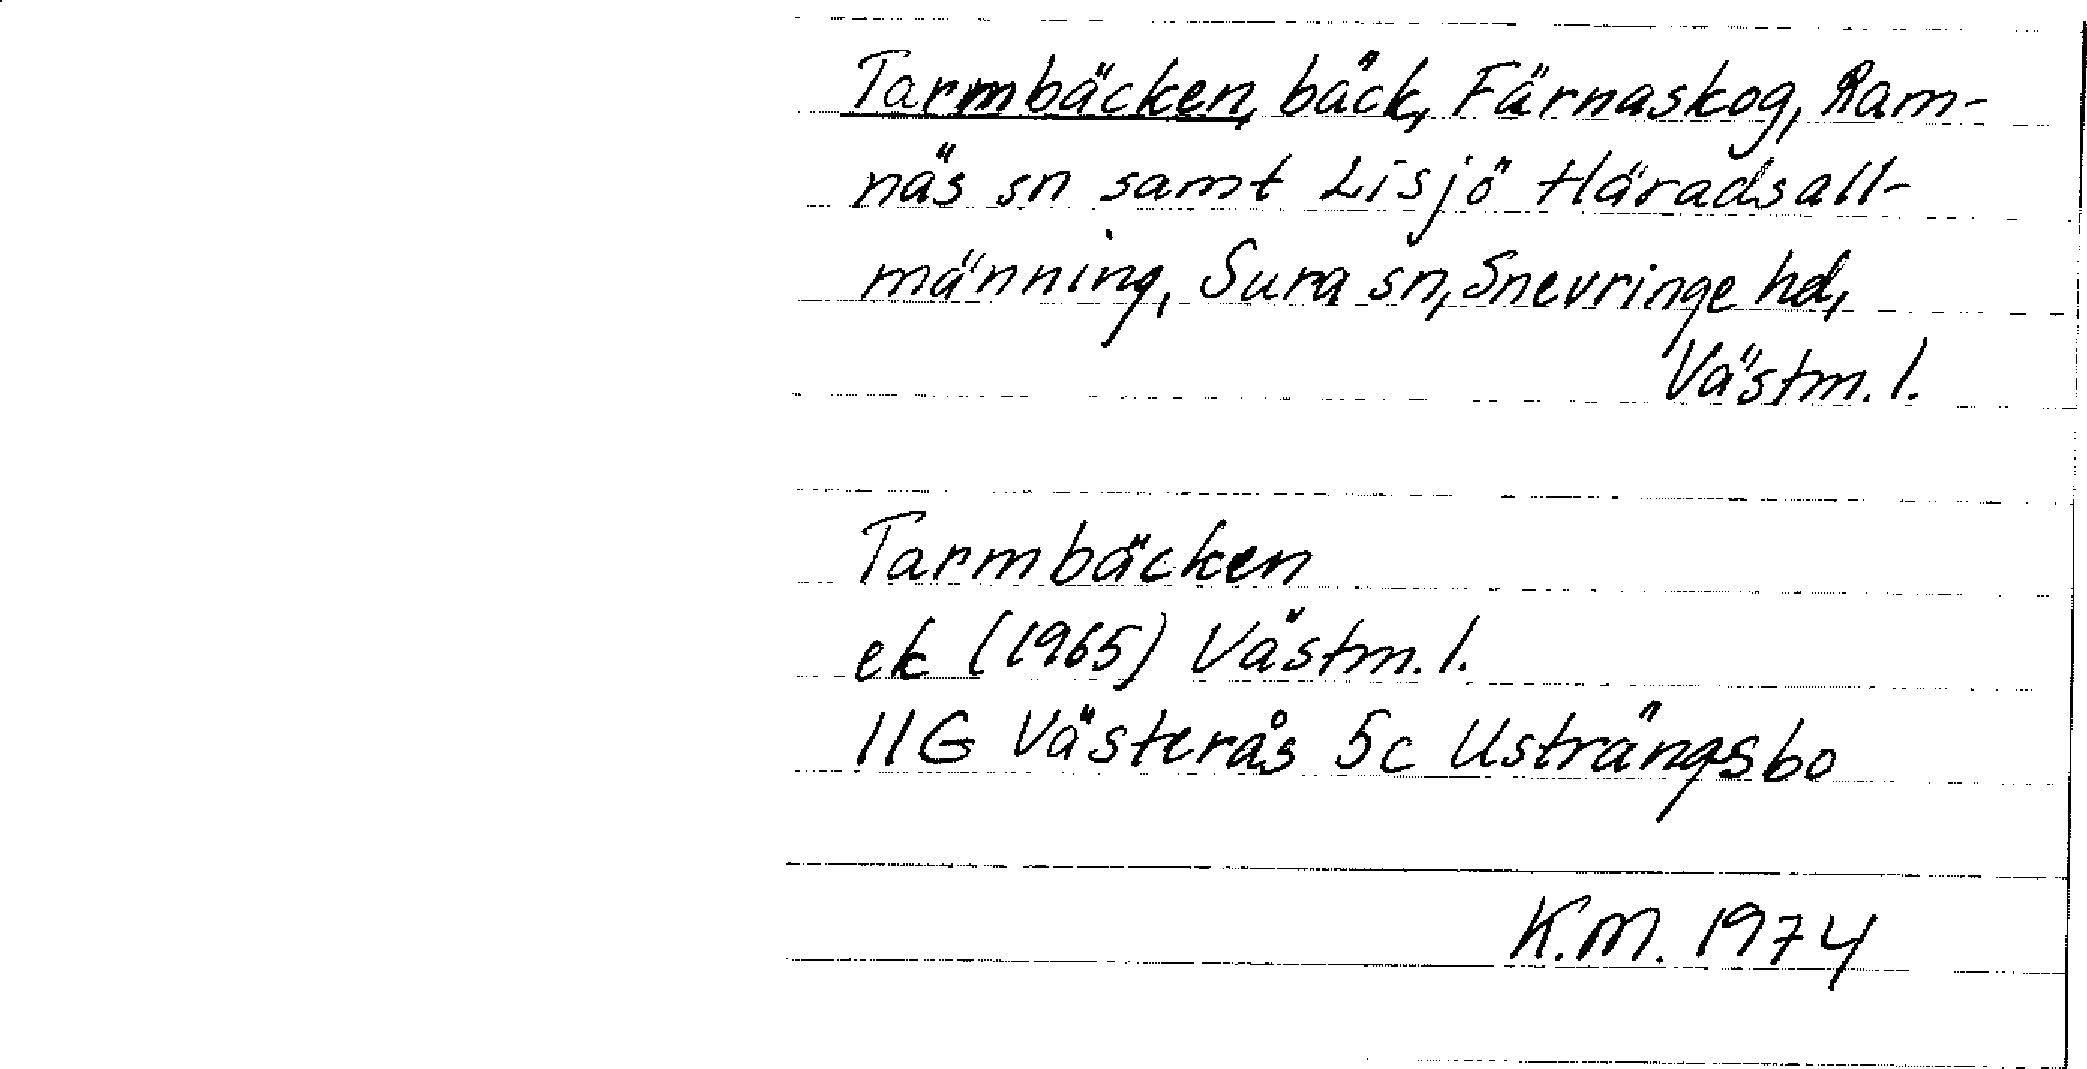 Tarmbäcken, bäck, Färnaskog, Ram-
näs sn samt Lisjö Häradsall-
männing, Sura sn, Snevringe hd,
Västm. l.
Tarmbäcken
ek (1965) Västm. l.
11G Västerås 5c Usträngsbo
K.M. 1974